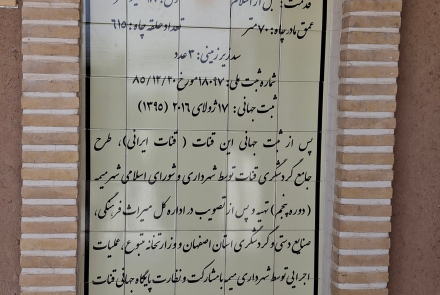 قدمت: قبل از اسلام
عمق مادر چاه: ۷۰ متر تعداد حلقه چاه: ۶۱۵
سد زیرزمینی: ۳ عدد
شماره ثبت ملی: ۱۸۰۹۷ مورخ ۸۵/۱۲/۲۰
ثبت جهانی: ۱۷ ژولای ۲۰۱۶ (۱۳۹۵)
پس از ثبت جهانی این قنات ( قنات ایرانی)، طرح
جامع گردشگری قنات توسط شهرداری و شورای اسلامی شهر میمه
(دوره پنجم) تهیه و پس از تصویب در اداره کل میراث فرهنگی،
صنایع دستی و گردشگری استان اصفهان و وزارتخانه متبوع، عملیات
اجرایی توسط شهرداری میمه با مشارکت و نظارت پایگاه جهانی قنات